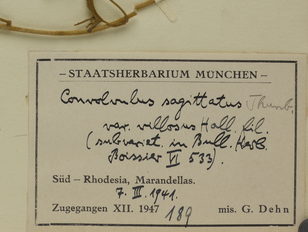 – STAATSHERBARIUM MÜNCHEN –
Convolvulus sagittatus Thunb.
var. villosus Hall. fil.
(subvariet. in Bull. Herb.
Boissier VI 533).
Süd – Rhodesia, Marandellas.
7. III. 1941.
Zugegangen XII. 1947 189 mis. G. Dehn